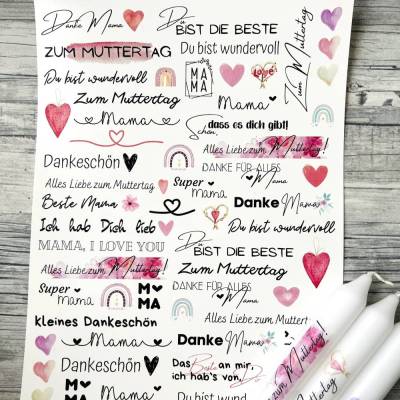 Danke Mama
Du
BIST DIE BESTE
ZUM MUTTERTAG
Du bist wundervoll
Zum Muttertag
Du bist wundervoll
MA
MA
Love
Zum Muttertag
Mama
Mama
Schön,
dass es dich gibt!
Alles Liebe zum Muttertag!
Dankeschön
DANKE FÜR ALLES
Mama
Alles Liebe zum Muttertag
Super
mama
Beste Mama
Danke Mama
Ich hab Dich lieb
Du bist wundervoll
MAMA, I LOVE YOU
Du
BIST DIE BESTE
Alles Liebe zum Muttertag!
Zum Muttertag
Super
mama
M
MA
DANKE FÜR ALLES
Mama
kleines Dankeschön
Alles Liebe zum Muttert
Danke Mama
Dankeschön
Das Beste an mir,
ich hab's von Dir
M
MA
Mama
zum Muttertag!
Muttertag